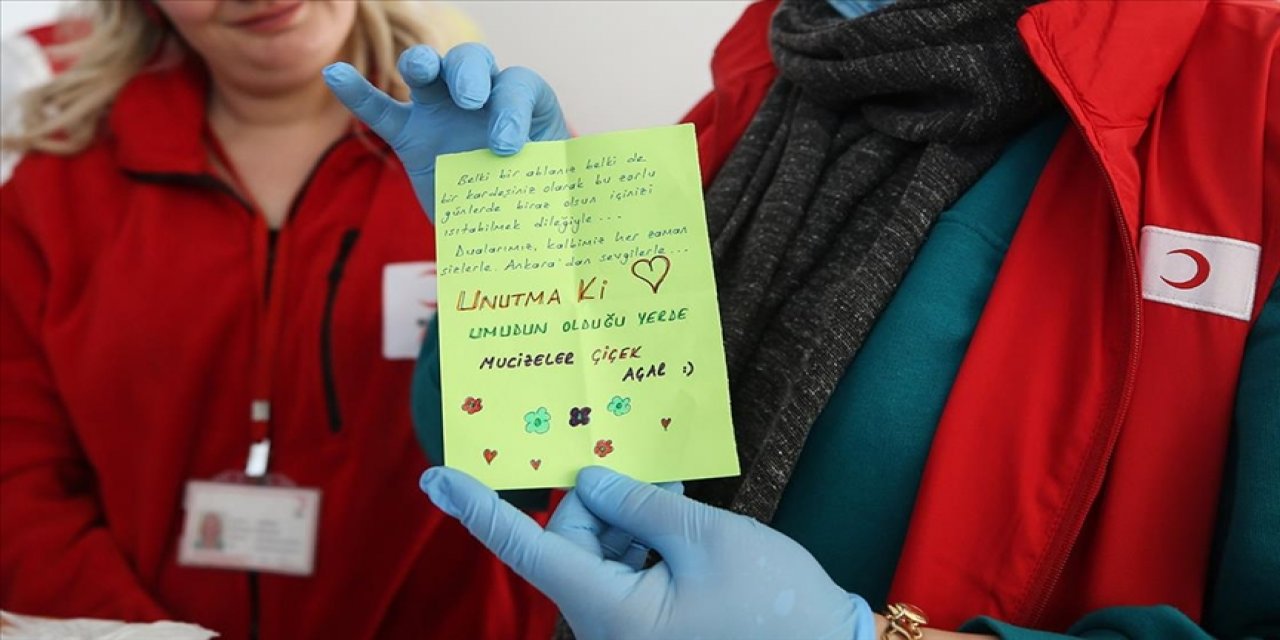 Belki bir ablanız belki de
bir kardeşiniz olarak bu zorlu
günlerde biraz olsun içinizi
ısıtabilmek dileğiyle...
Dualarımız, kalbimiz her zaman
sizlerle. Ankara'dan sevgilerle...
UNUTMA Ki
UMUDUN OLDUĞU YERDE
MUCİZELER ÇİÇEK
AÇAR :)